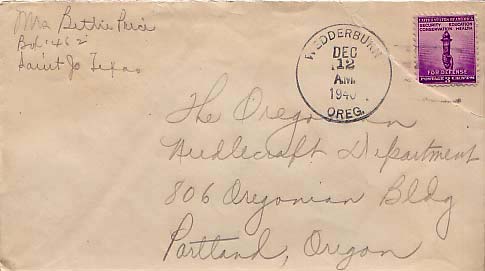 Mrs Bettie Price
Box 462
Saint Jo Texas
WEDDERBURN
DEC
12
A.M.
1940
OREG.
UNITED STATES OF AMERICA
SECURITY EDUCATION
CONSERVATION HEALTH
FOR DEFENSE
POSTAGE 3 CENTS
The Oregonian
Needlecraft Department
806 Oregonian Bldg
Portland, Oregon